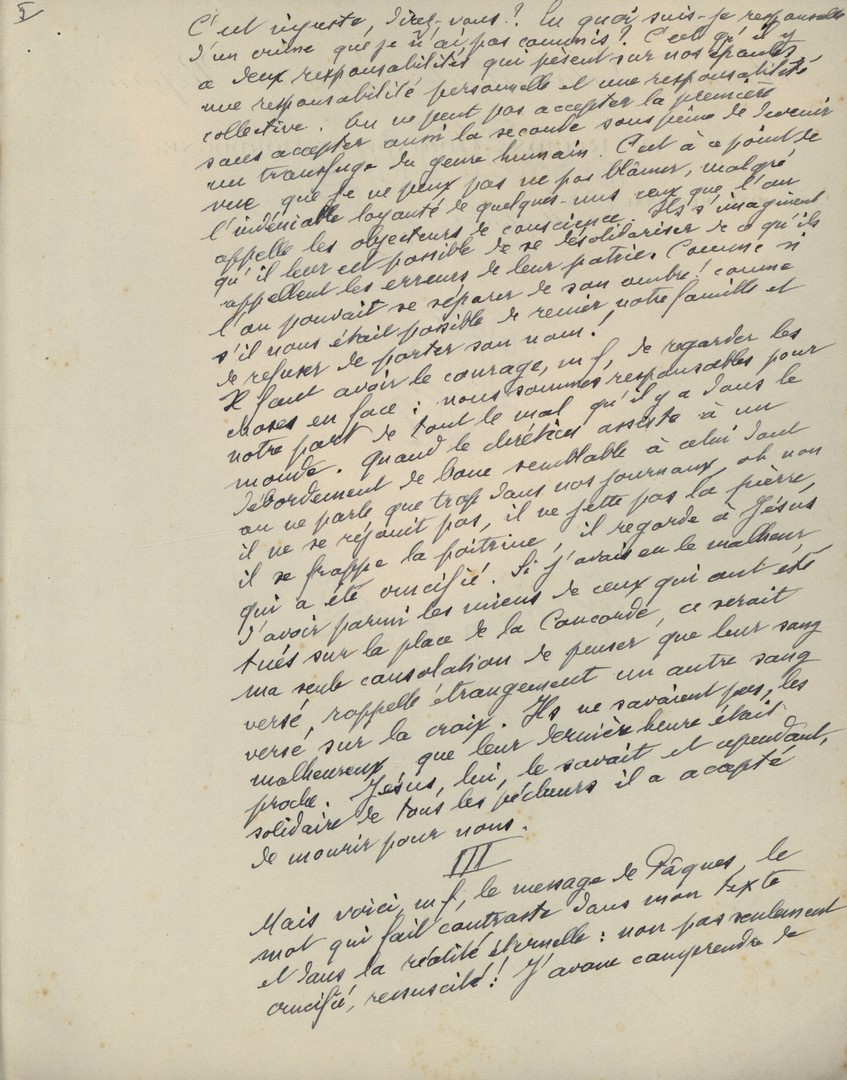 5
C'est injuste, direz-vous? En quoi suis-je responsable
d'un crime que je n'ai pas commis? C'est qu'il y
a deux responsabilités qui pèsent sur nos épaules,
une responsabilité personnelle et une responsabilité
collective. On ne peut pas accepter la première
sans accepter aussi la seconde sous peine de devenir
un transfuge du genre humain. C'est à ce point de
vue que je ne peux pas ne pas blâmer, malgré
l'indéniable loyauté de quelques-uns ceux que l'on
appelle les objecteurs de conscience. Ils s'imaginent
qu'il leur est possible de se désolidariser de ce qu'ils
appellent les erreurs de leur patrie. Comme si
l'on pouvait se séparer de son ombre! comme
s'il nous était possible de renier notre famille et
de refuser de porter son nom!
Il faut avoir le courage, m f, de regarder les
choses en face: nous sommes responsables pour
notre part de tout le mal qu'il y a dans le
monde. Quand le chrétien assiste à un
débordement de boue semblable à celui dont
on ne parle que trop dans nos journaux, oh non
il ne se réjouit pas, il ne jette pas la pierre,
il se frappe la poitrine, il regarde à Jésus
qui a été crucifié. Si j'avais eu le malheur
d'avoir parmi les miens de ceux qui ont été
tués sur la place de la Concorde, ce serait
ma seule consolation de penser que leur sang
versé, rappelle étrangement un autre sang
versé sur la croix. Ils ne savaient pas, les
malheureux que leur dernière heure était
proche. Jésus, lui, le savait et cependant,
solidaire de tous les pécheurs il a accepté
de mourir pour nous.
III
Mais voici, m f, le message de Pâques, le
mot qui fait contraste dans mon texte
et dans la réalité éternelle: non pas seulement
crucifié, ressuscité! J'avoue comprendre de